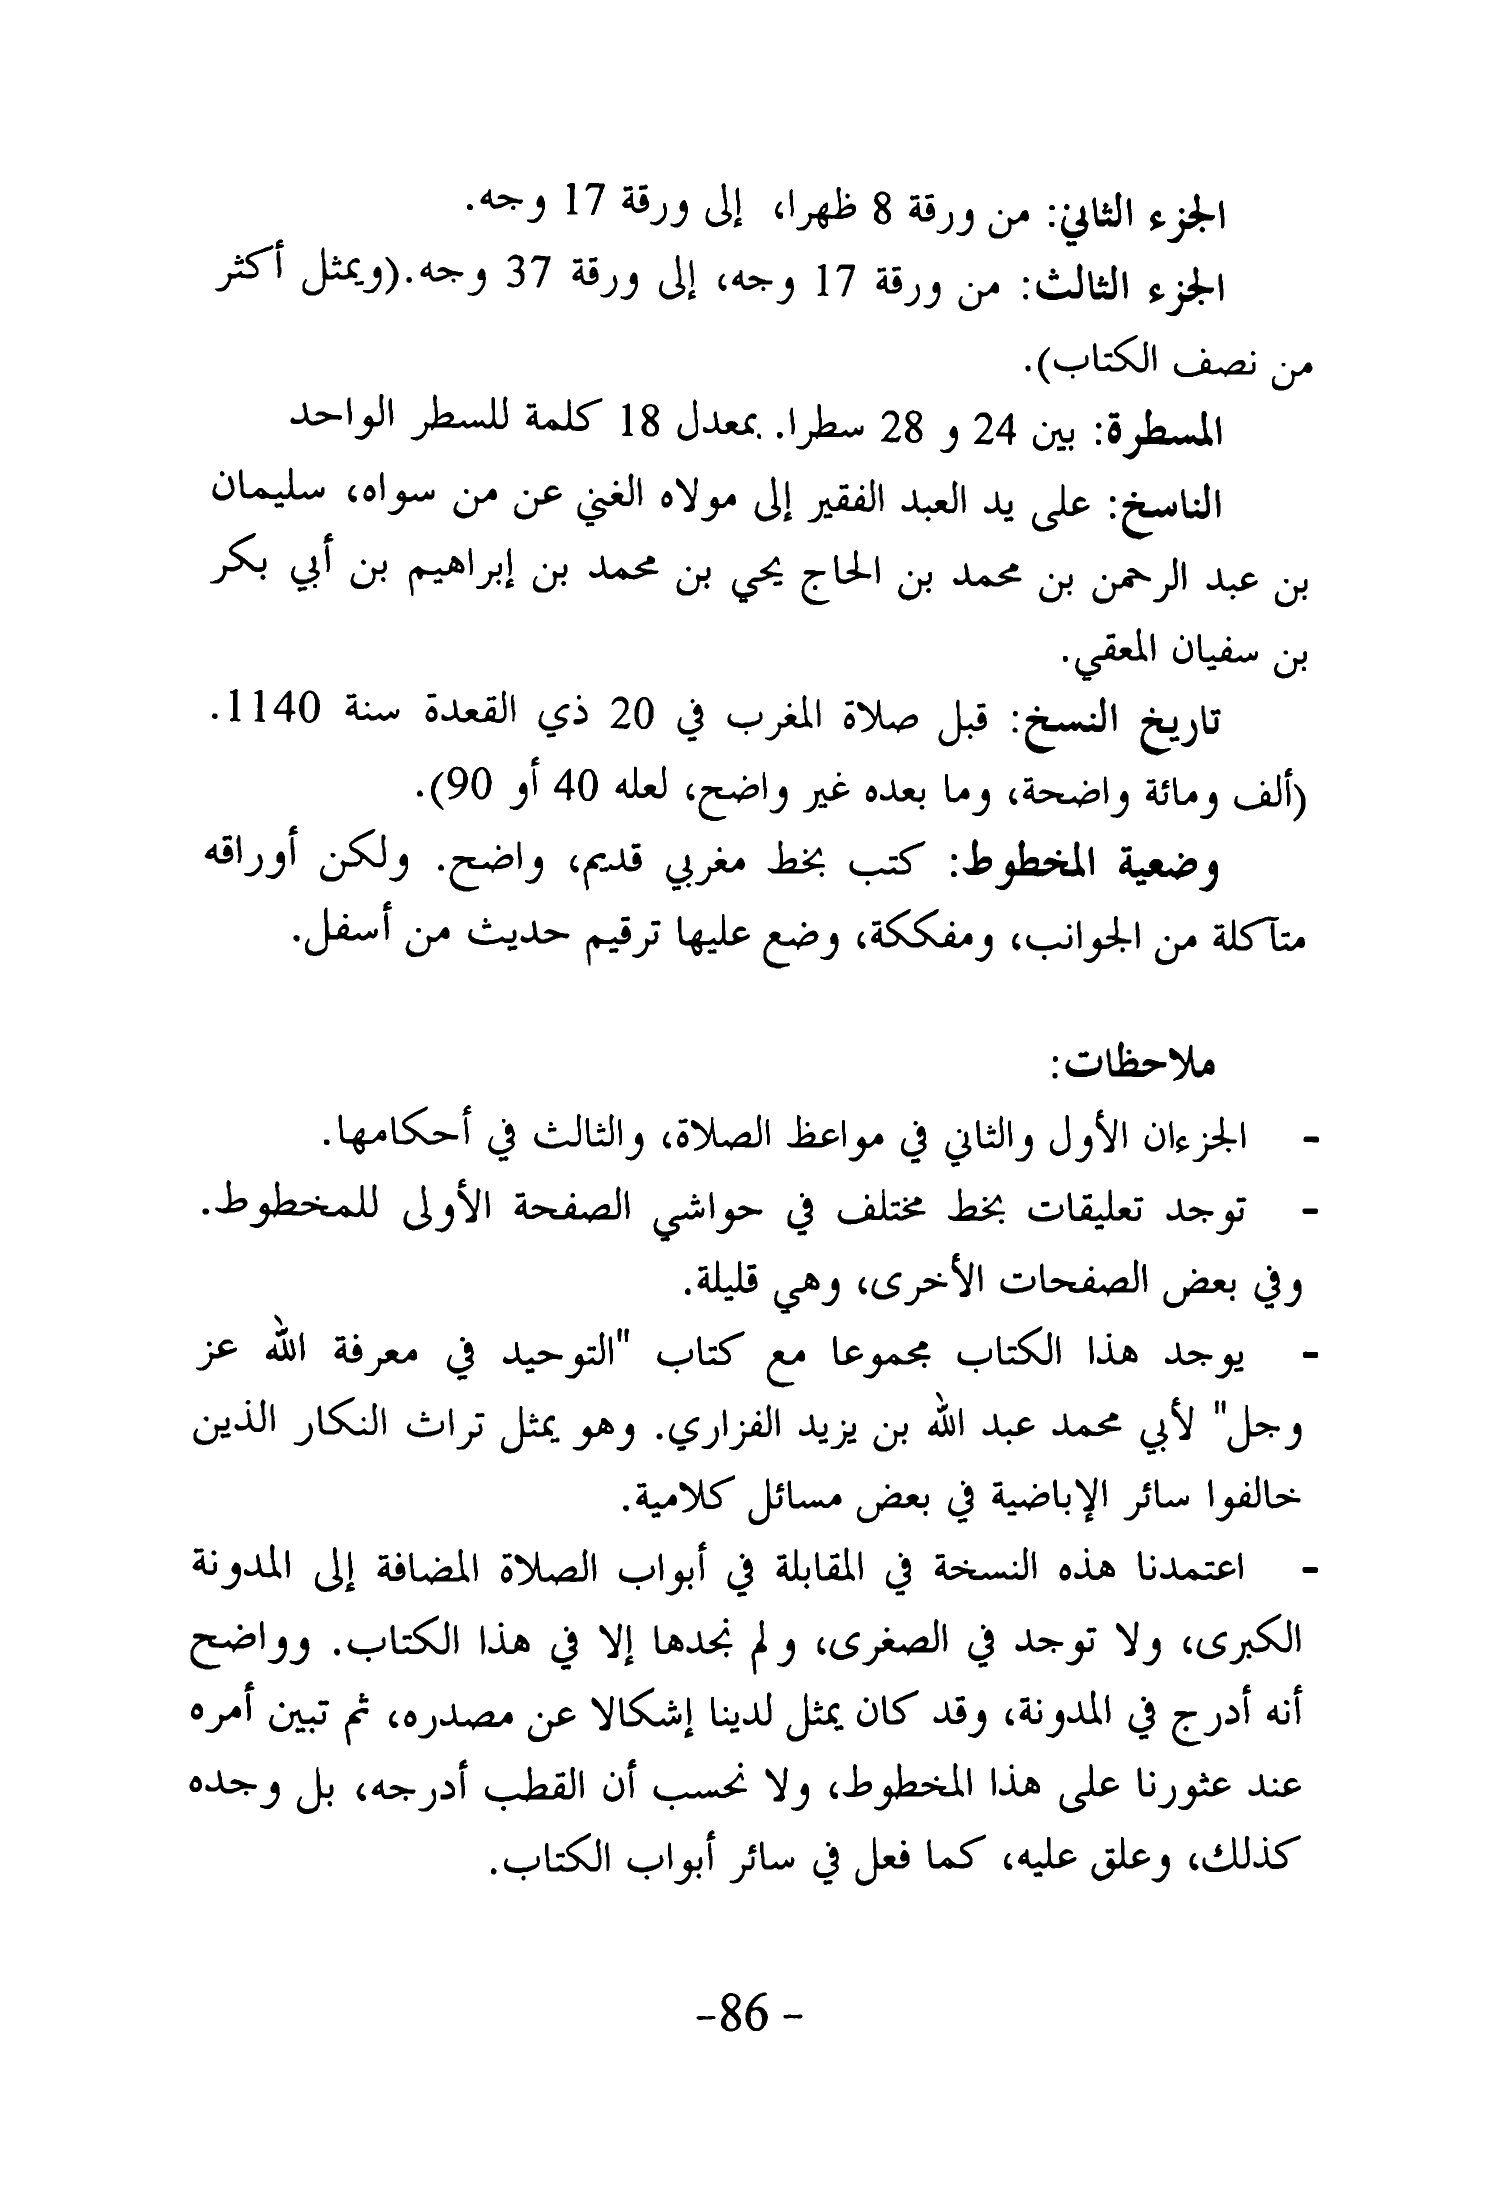 الجزء الثاني: من ورقة 8 ظهرا، إلى ورقة 17 وجه.
الجزء الثالث: من ورقة 17 وجه، إلى ورقة 37 وجه.(ويمثل أكثر
من نصف الكتاب).
المسطرة: بين 24 و 28 سطرا. بمعدل 18 كلمة للسطر الواحد
الناسخ: على يد العبد الفقير إلى مولاه الغني عن من سواه، سليمان
بن عبد الرحمن بن محمد بن الحاج يحي بن محمد بن إبراهيم بن أبي بكر
بن سفيان المعقي.
تاريخ النسخ: قبل صلاة المغرب في 20 ذي القعدة سنة 1140.
(ألف ومائة واضحة، وما بعده غير واضح، لعله 40 أو 90).
وضعية المخطوط: كتب بخط مغربي قديم، واضح. ولكن أوراقه
متآكلة من الجوانب، ومفككة، وضع عليها ترقيم حديث من أسفل.
ملاحظات:
- الجزءان الأول والثاني في مواعظ الصلاة، والثالث في أحكامها.
- توجد تعليقات بخط مختلف في حواشي الصفحة الأولى للمخطوط.
وفي بعض الصفحات الأخرى، وهي قليلة.
- يوجد هذا الكتاب مجموعا مع كتاب "التوحيد في معرفة الله عز
وجل" لأبي محمد عبد الله بن يزيد الفزاري. وهو يمثل تراث النكار الذين
خالفوا سائر الإباضية في بعض مسائل كلامية.
- اعتمدنا هذه النسخة في المقابلة في أبواب الصلاة المضافة إلى المدونة
الكبرى، ولا توجد في الصغرى، ولم نجدها إلا في هذا الكتاب. وواضح
أنه أدرج في المدونة، وقد كان يمثل لدينا إشكالا عن مصدره، ثم تبين أمره
عند عثورنا على هذا المخطوط، ولا نحسب أن القطب أدرجه، بل وجده
كذلك، وعلق عليه، كما فعل في سائر أبواب الكتاب.
- 86-